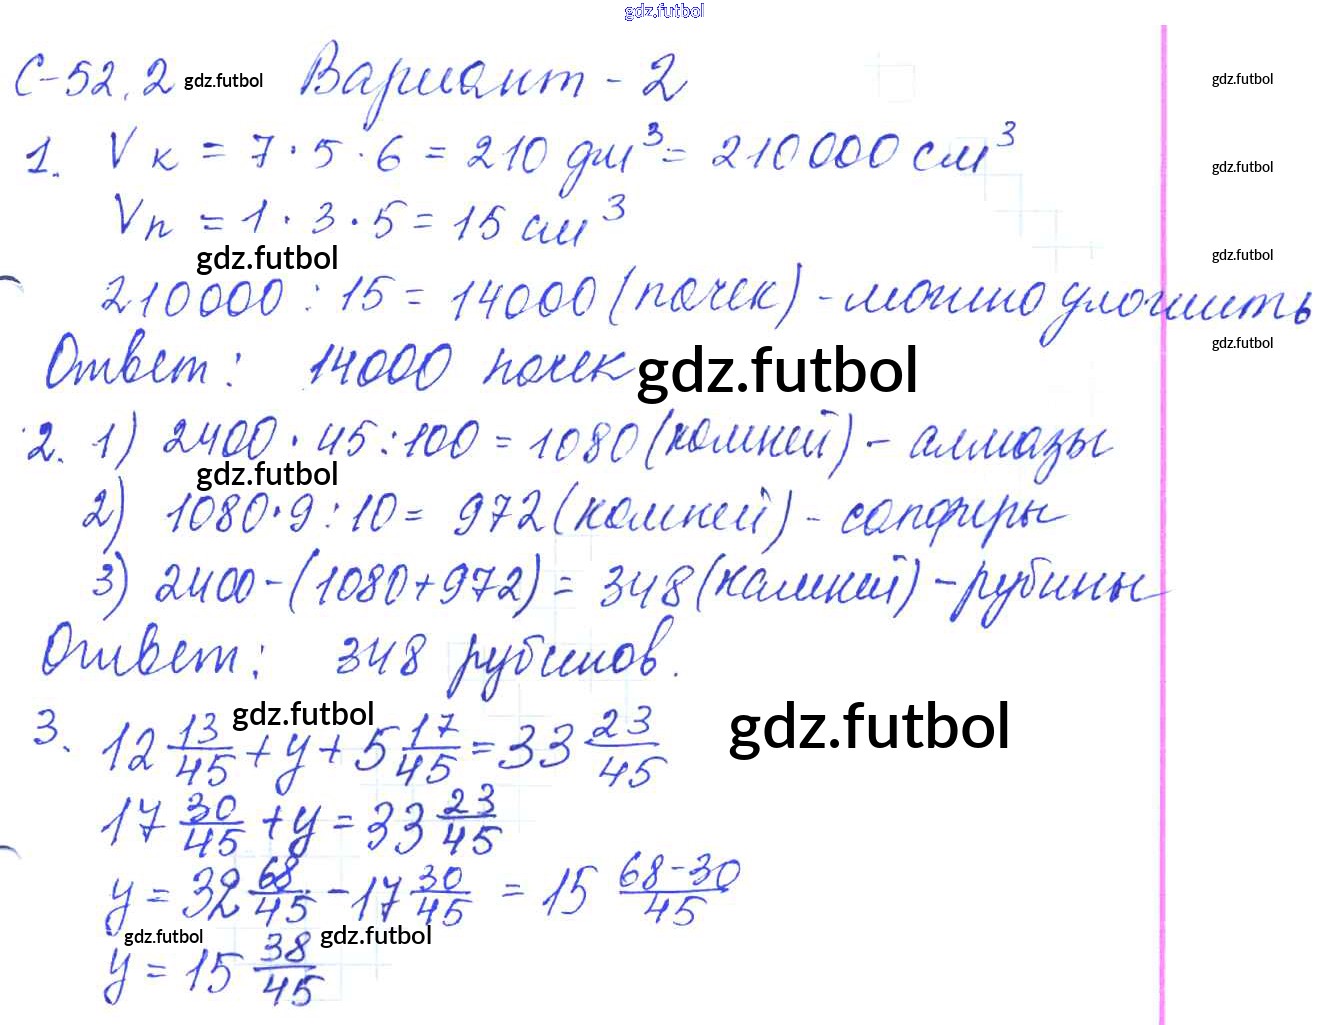 gdz.futbol
С-52.2 gdz.futbol Вариант - 2 gdz.futbol
1. Vк = 7·5·6 = 210 дм³ = 210000 см³ gdz.futbol
Vп = 1·3·5 = 15 см³
gdz.futbol gdz.futbol
210000 : 15 = 14000 (пачек) - можно уложить
Ответ: 14000 пачек gdz.futbol gdz.futbol
2. 1) 2400 · 45 : 100 = 1080 (камней) - алмазы
gdz.futbol
2) 1080·9 : 10 = 972 (камней) - сапфиры
3) 2400 - (1080 + 972) = 348 (камней) - рубины
Ответ: 348 рубинов.
3. 12 13/45 + y + 5 17/45 = 33 23/45 gdz.futbol gdz.futbol
17 30/45 + y = 33 23/45
y = 32 68/45 - 17 30/45 = 15 (68-30)/45
gdz.futbol gdz.futbol
y = 15 38/45